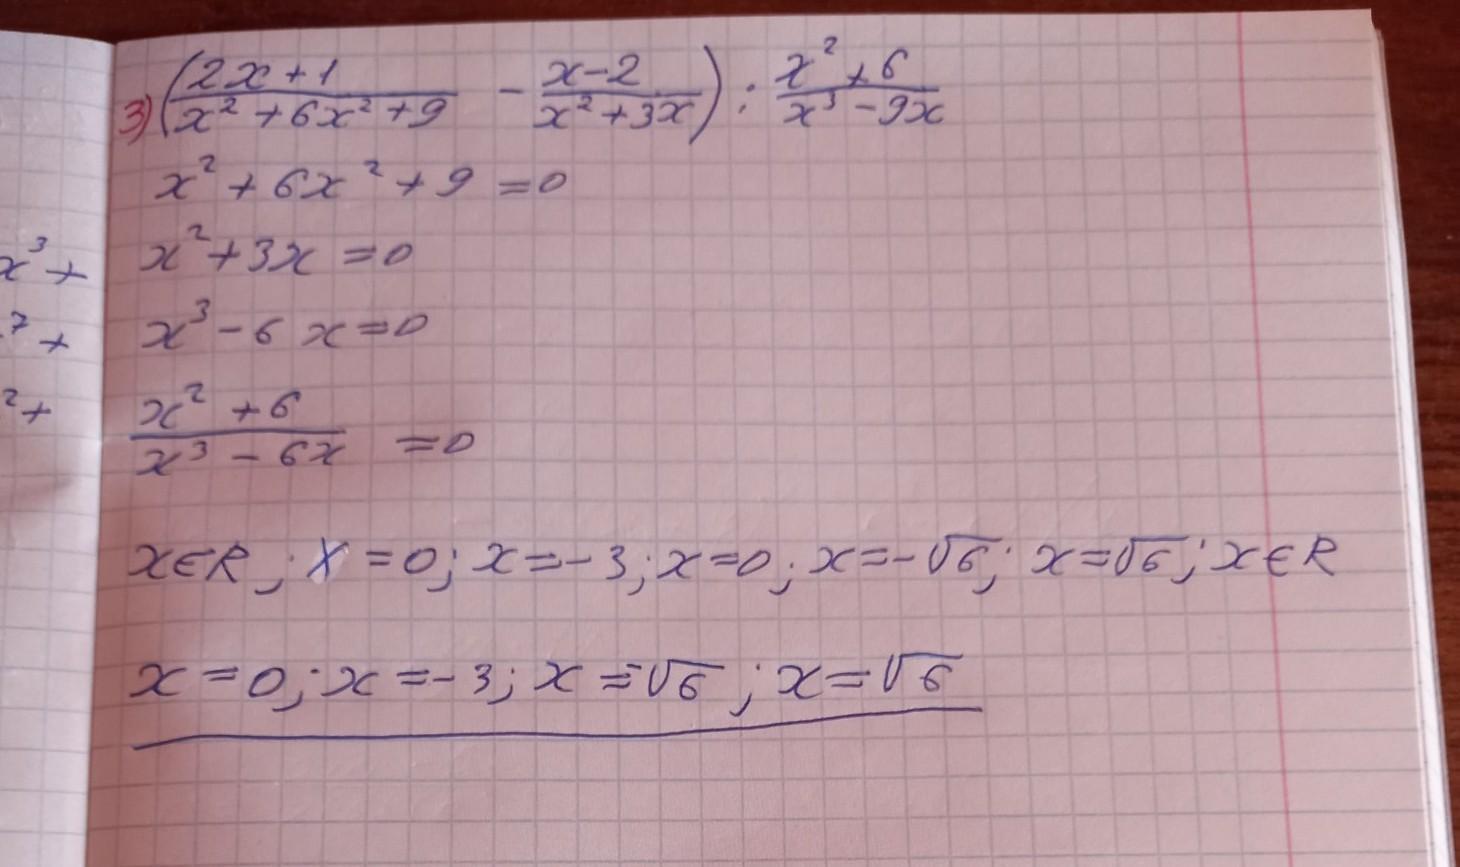 3) (2x+1 / x² + 6x² + 9 - x-2 / x² + 3x) : x² + 6 / x³ - 9x
x² + 6x² + 9 = 0
x² + 3x = 0
x³ - 6x = 0
x² + 6 / x³ - 6x = 0
x∈R; x = 0; x = -3; x = 0; x = -√6; x = √6; x∈R
x = 0; x = -3; x = -√6; x = √6
x³ +
7 +
2 +